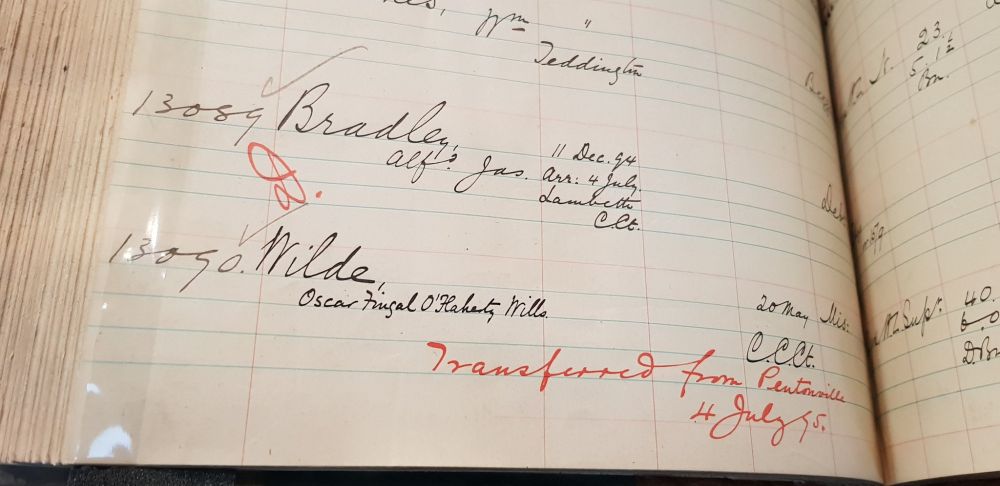 Wm "
Teddington
13089 Bradley, 11 Dec. 94
Alfd. Jas. Arr: 4 July.
Lambeth
C.Ct.
13090. Wilde,
Oscar Fingal O'Flaherty Wills. 20 May Mis:
C.C.Ct.
Transferred from Pentonville
4 July 95.
St. 23.
5. 1½
Bn.
Supt. 40.
6.0
D.Bn